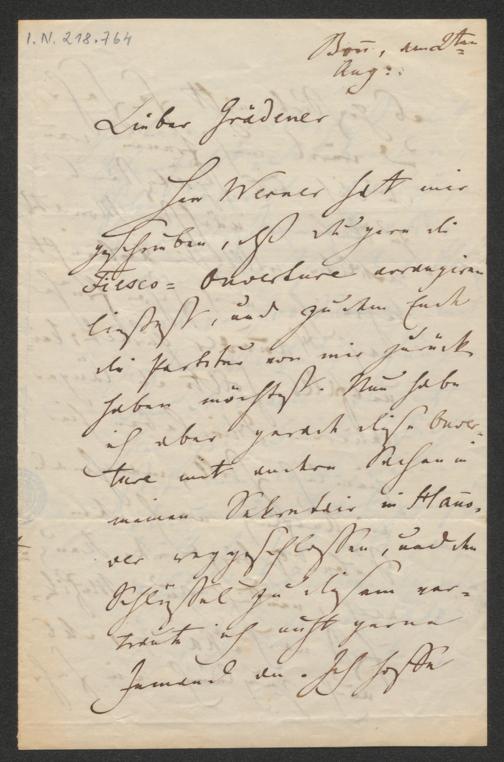 I.N. 218.764
Bonn, am 2ten
Aug:
Lieber Grädener
Herr Werner hat mir
geschrieben, daß du gern die
Fiesco-Ouverture arrangiren
ließest, und zu dem Ende
die Partitur von mir zurück
haben möchtest. Nun habe
ich aber gerade diese Ouver-
ture mit andern Sachen in
meinen Sekretair in Hanno-
ver weggeschlossen, und den
Schlüssel zu diesem ver-
traute ich nicht gerne
Jemand an. Ich hoffe